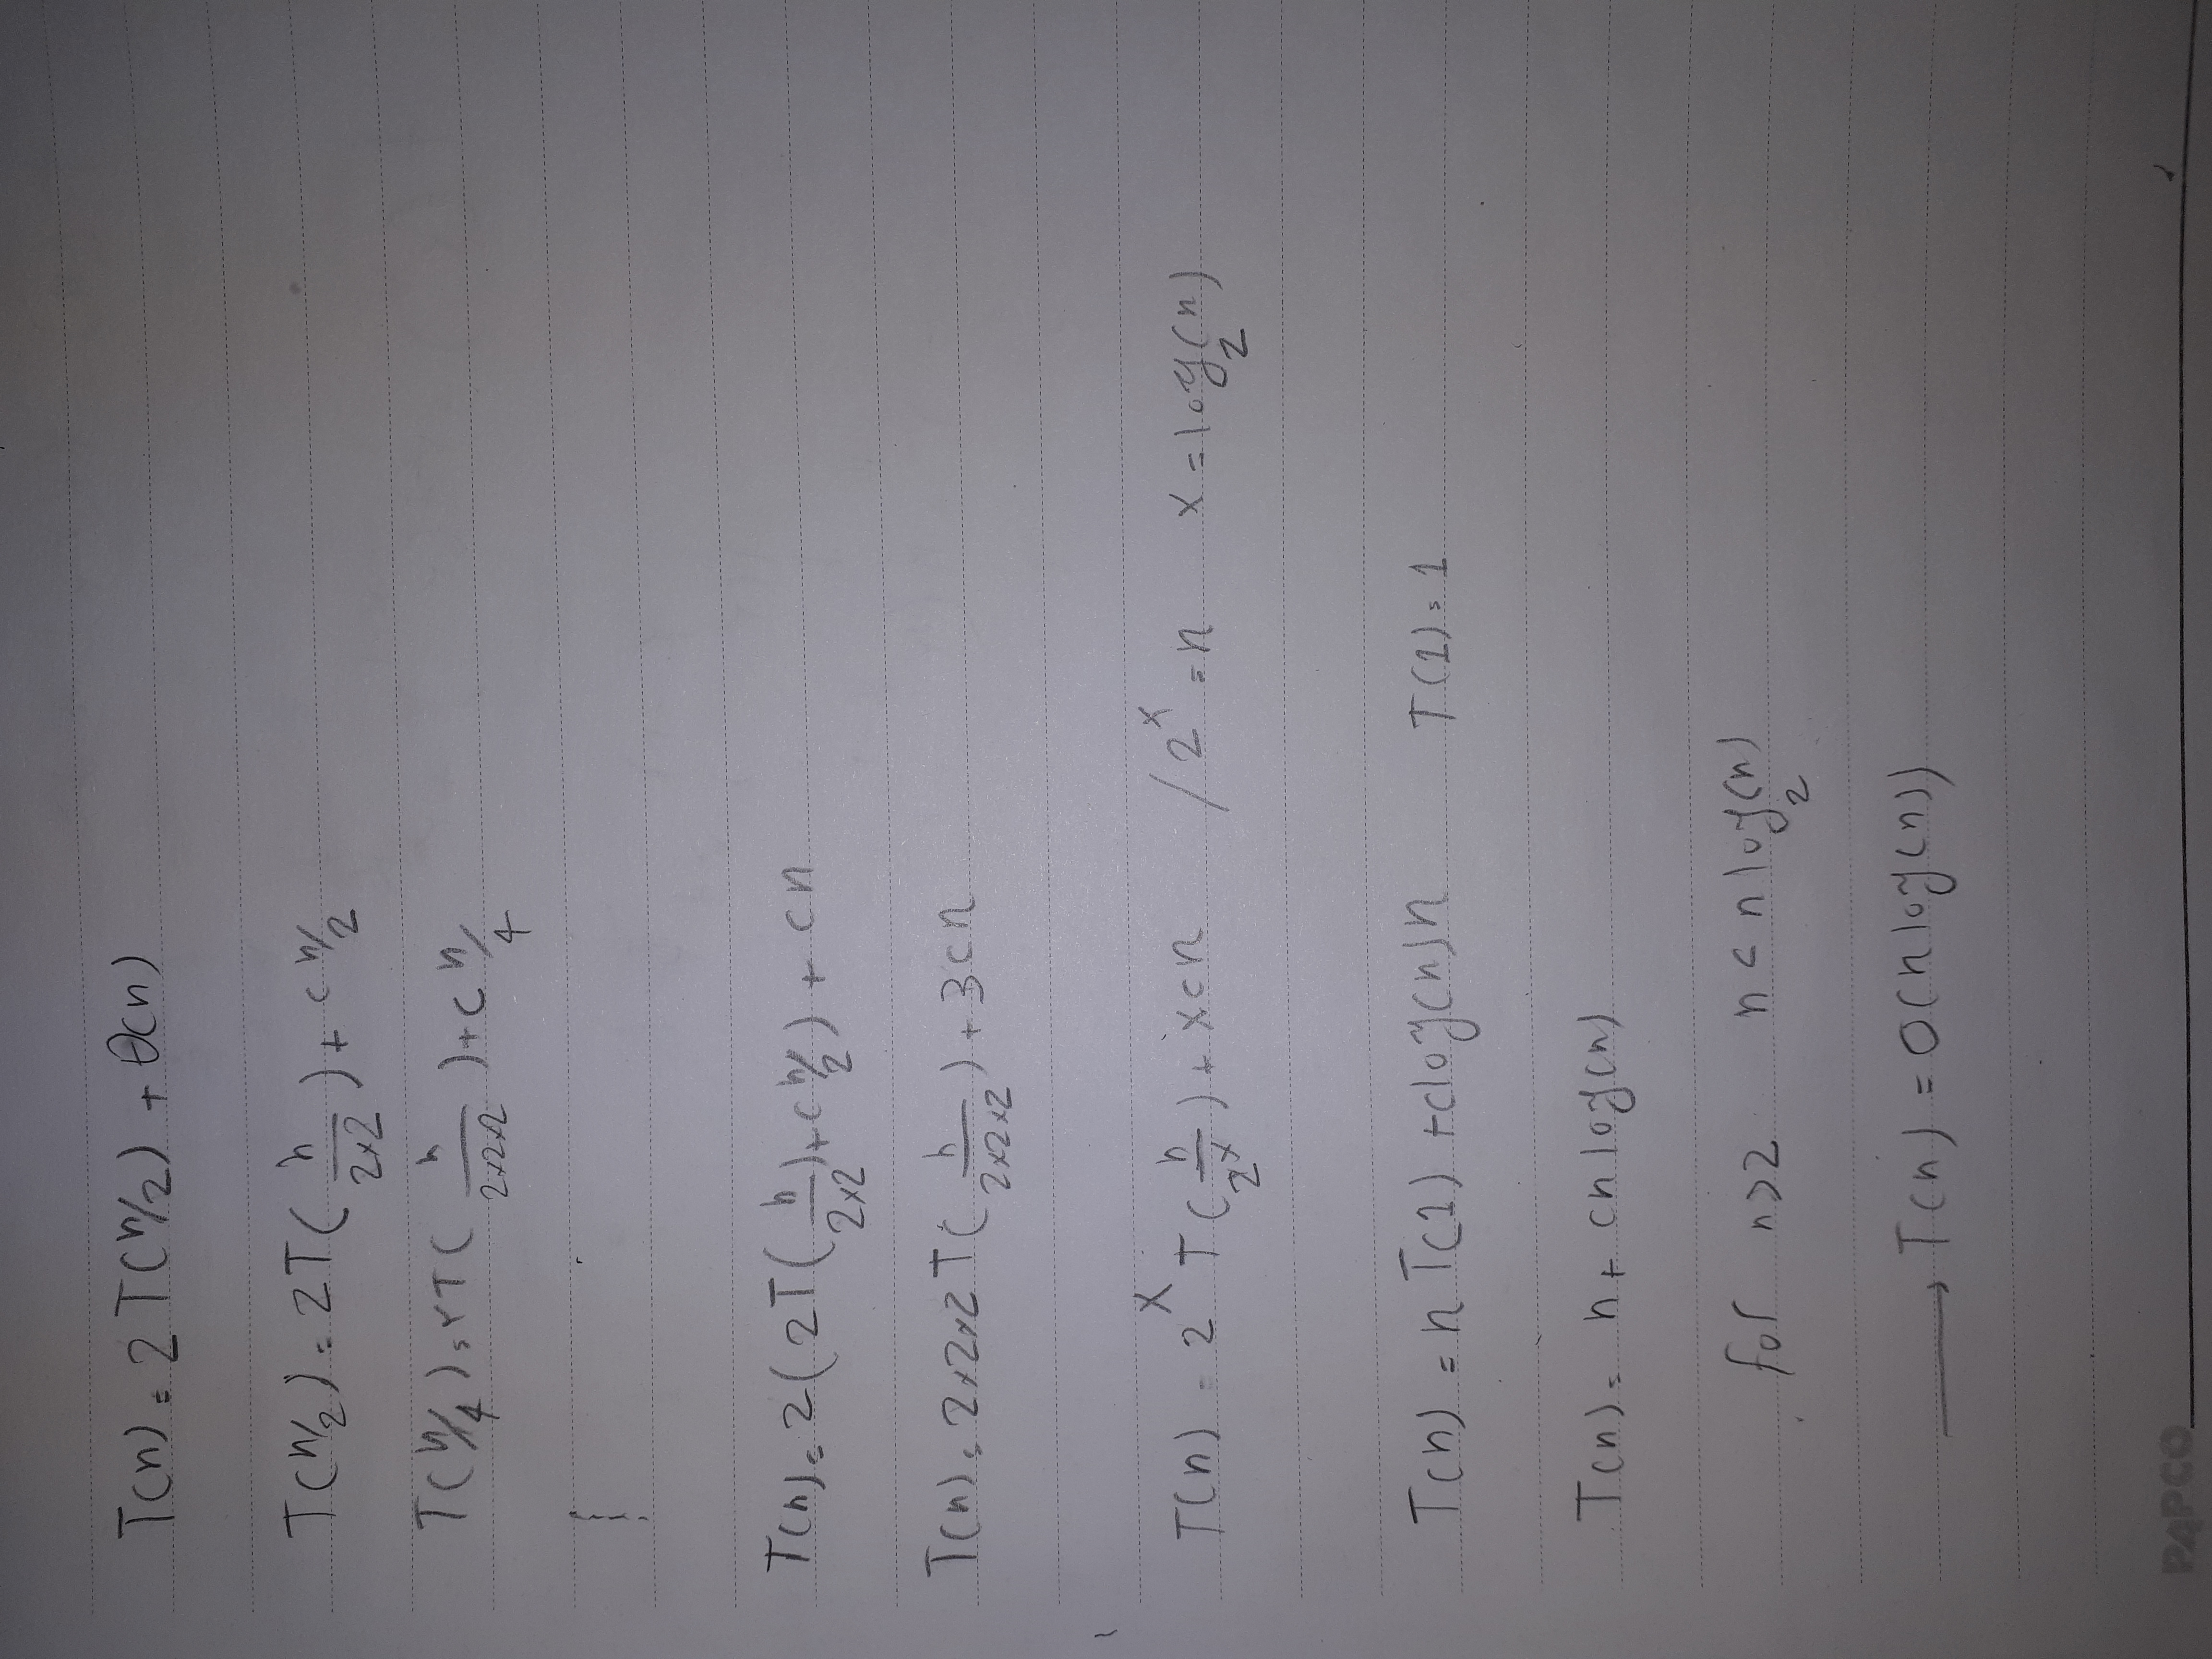 T(n) = 2T(n/2) + θ(n)
T(n/2) = 2T(n/(2×2)) + c n/2
T(n/4) = ۲T(n/(2×2×2)) + c n/4
T(n) = 2(2T(n/(2×2)) + c n/2) + cn
T(n) = 2×2×2 T(n/(2×2×2)) + 3cn
T(n) = 2^x T(n/2^x) + xcn / 2^x = n x = log₂(n)
T(n) = n T(1) + c log(n) n T(1) = 1
T(n) = n + cn log(n)
for n>2 n < n log₂(n)
→ T(n) = O(n log(n))
PAPCO